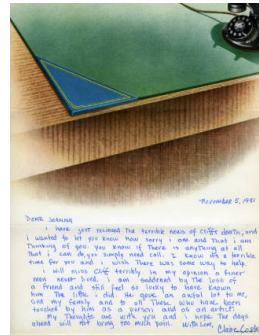 November 5, 1981
Dear Johnna
I have just recieved the terrible news of Cliff's death, and
i wanted to let you know how sorry i am and that i am
Thinking of you. You know if There is anything at all
That i can do, you simply need call. I know its a terrible
time for you and i wish There was some way to help.
I will miss Cliff terribly, in my opinion a finer
man never lived. i am saddened by The loss of
a friend and still feel so lucky to have known
him The little i did. He gave an awful lot to me,
and my family and to all Those who have been
touched by him as a person and as an artist.
My Thoughts are with you and i hope The days
ahead will not bring too much pain. With Love,